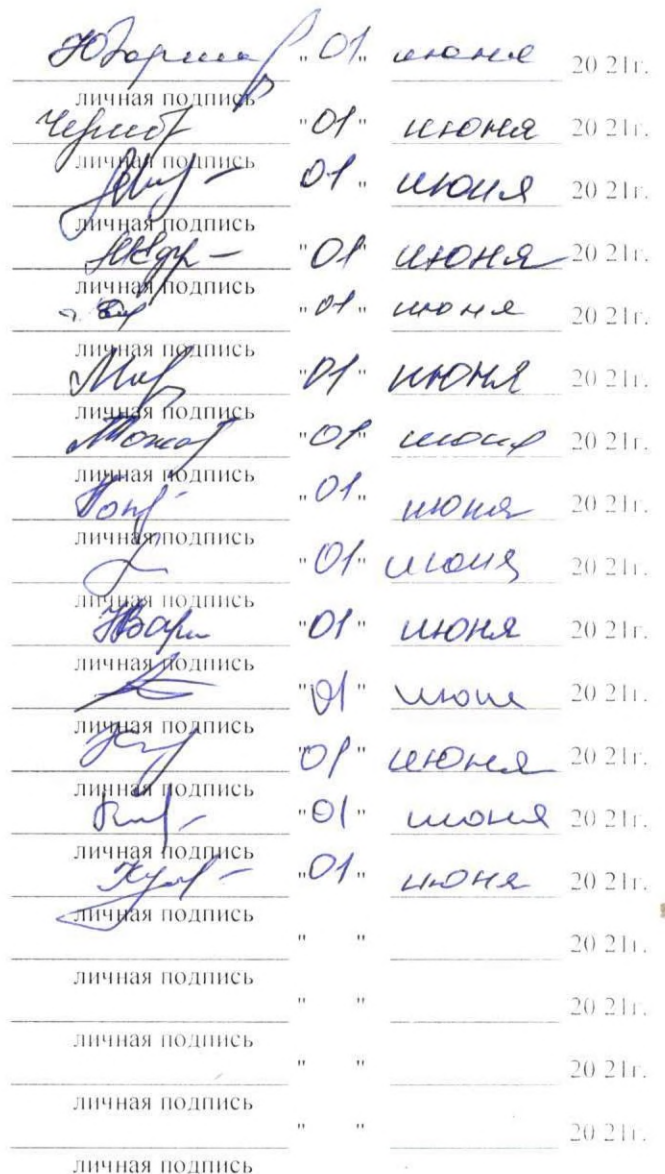 "01" июня 2021г.
личная подпись
"01" июня 2021г.
личная подпись
01" июня 2021г.
личная подпись
"01" июня 2021г.
личная подпись
"01" июня 2021г.
личная подпись
"01" июня 2021г.
личная подпись
"01" июня 2021г.
личная подпись
"01" июня 2021г.
личная подпись
"01" июня 2021г.
личная подпись
"01" июня 2021г.
личная подпись
"01" июня 2021г.
личная подпись
"01" июня 2021г.
личная подпись
"01" июня 2021г.
личная подпись
"01" июня 2021г.
личная подпись
" " 2021г.
личная подпись
" " 2021г.
личная подпись
" " 2021г.
личная подпись
" " 2021г.
личная подпись